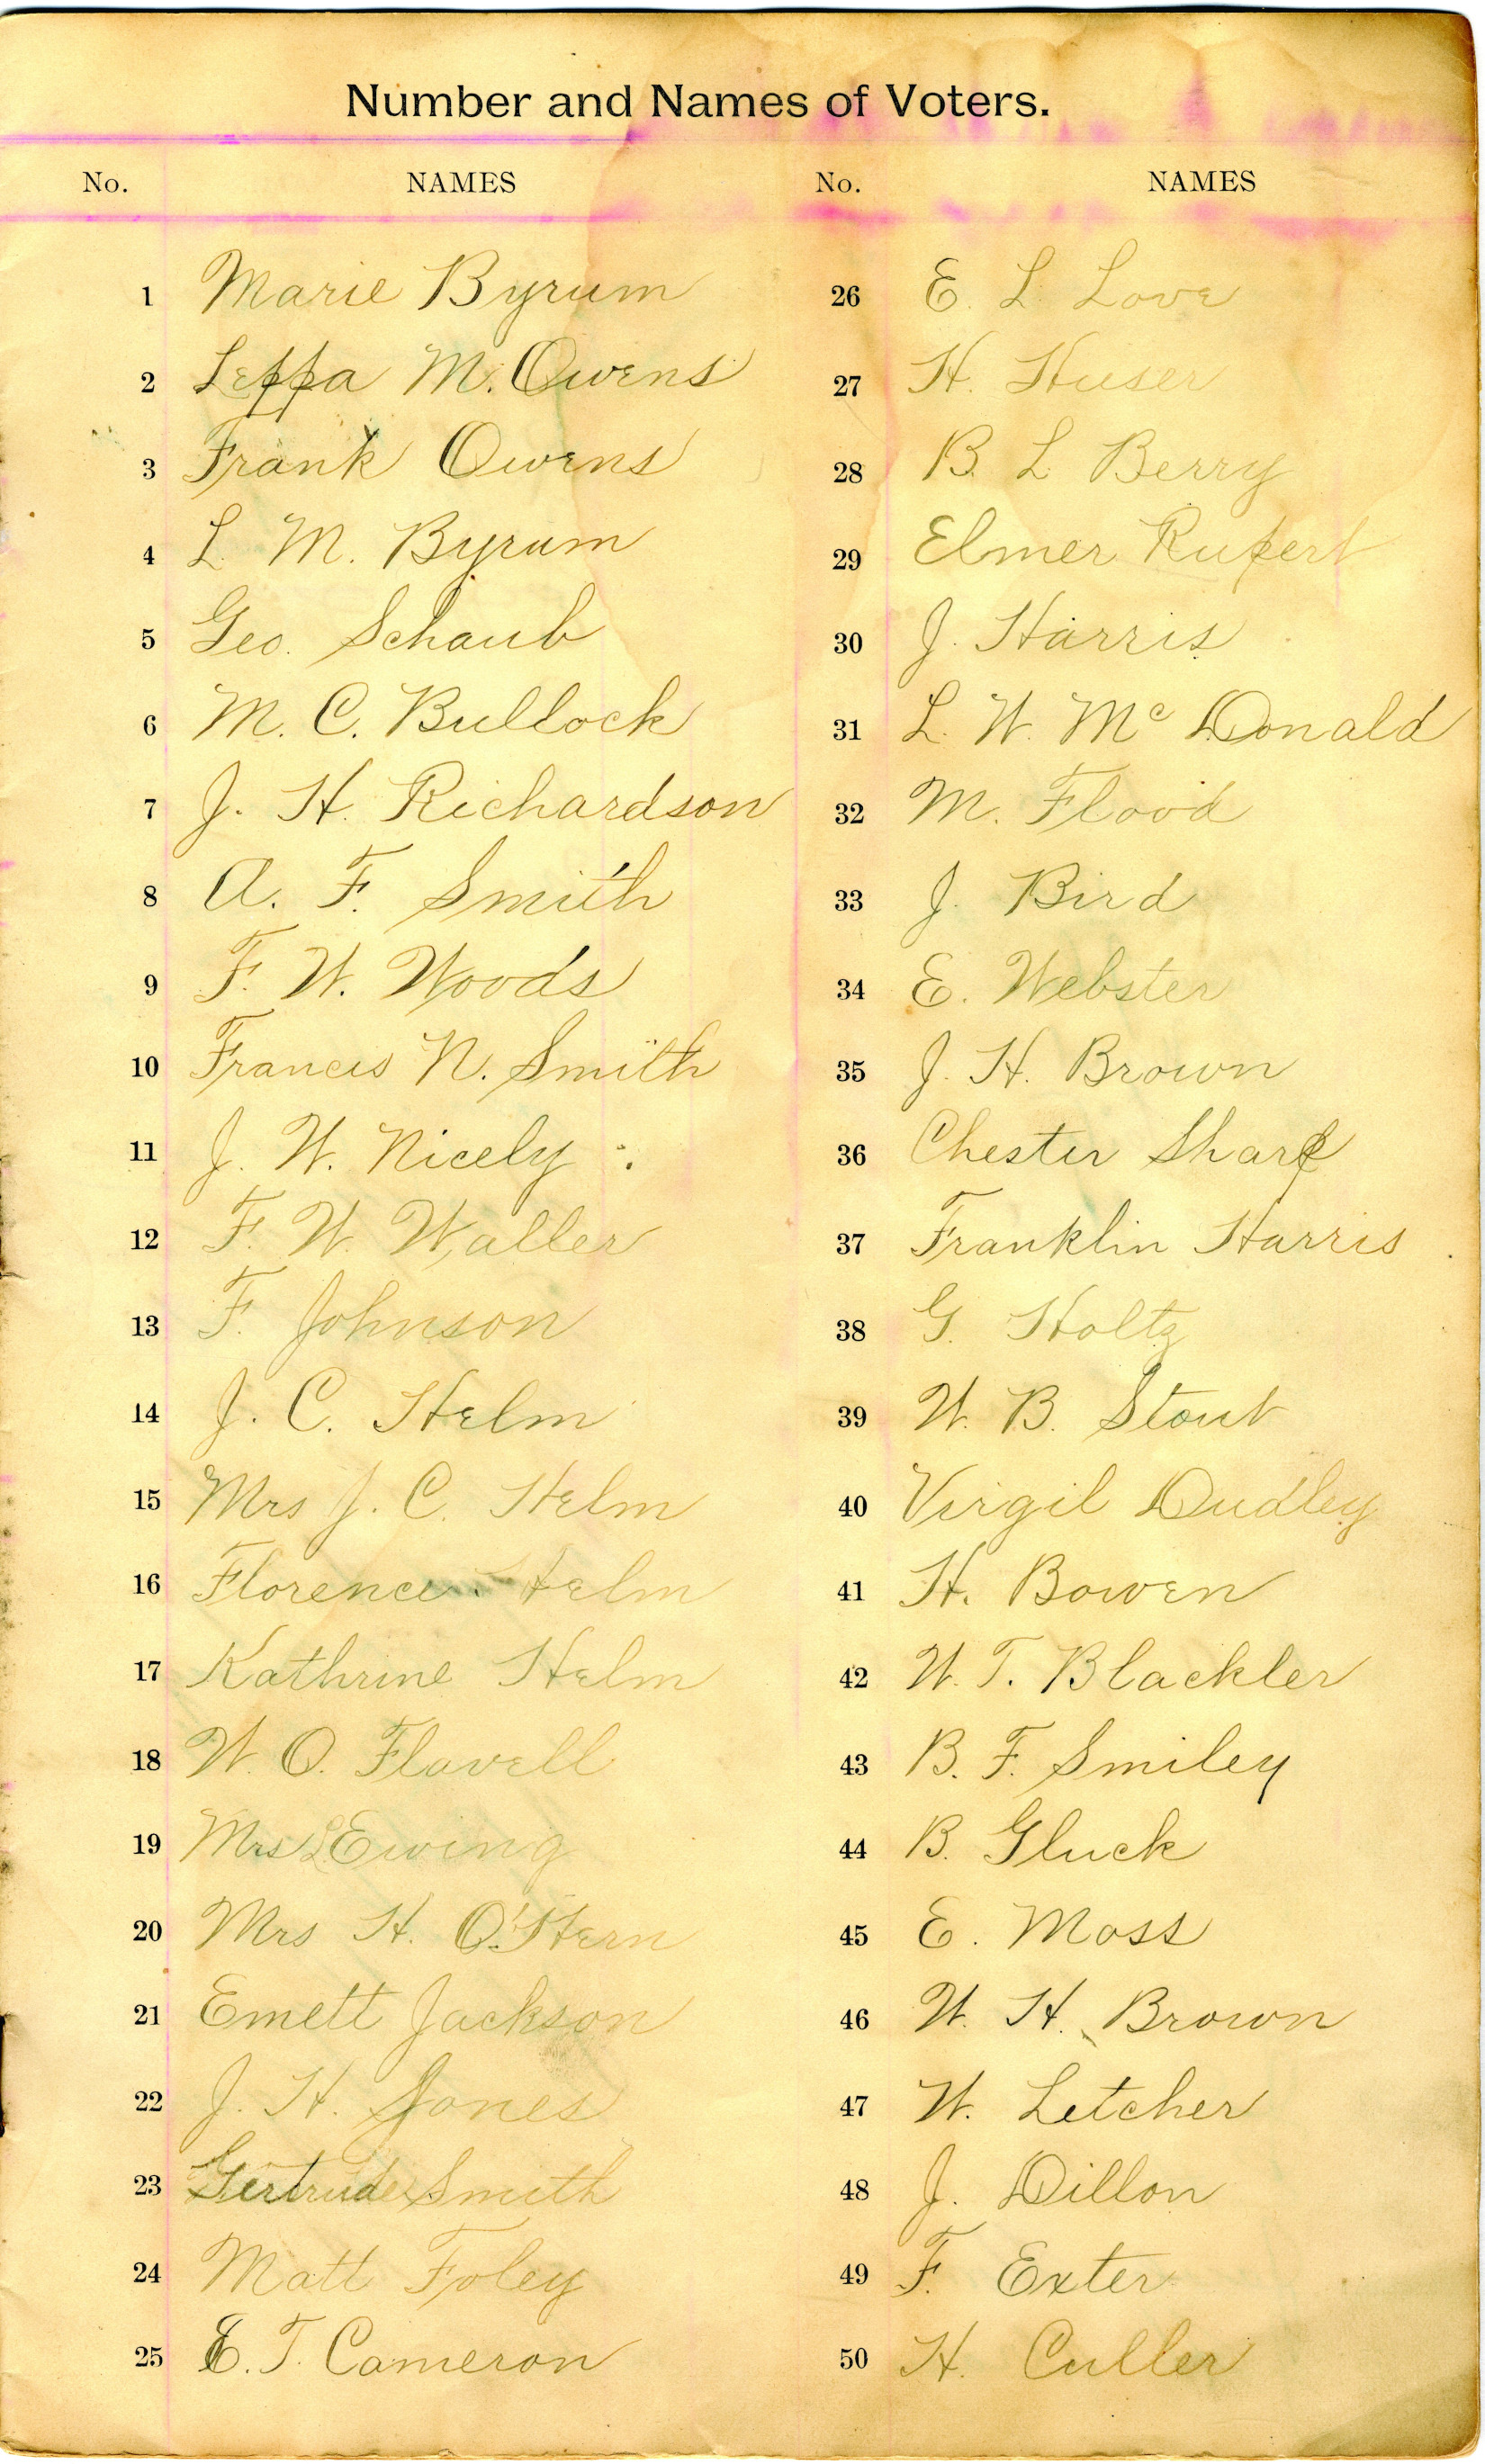 Number and Names of Voters.
No. NAMES No. NAMES
1 Marie Byrum
2 Leppa M. Owens
3 Frank Owens
4 L. M. Byrum
5 Geo. Schaub
6 M. C. Bullock
7 J. H. Richardson
8 A. F. Smith
9 F. W. Woods
10 Francis N. Smith
11 J. W. Nicely
12 F. W. Waller
13 F. Johnson
14 J. C. Helm
15 Mrs J. C. Helm
16 Florence Helm
17 Kathrine Helm
18 W. O. Flavell
19 Mrs L Ewing
20 Mrs H. O'Hern
21 Emett Jackson
22 J. H. Jones
23 Gertrude Smith
24 Matt Foley
25 E. T. Cameron
26 E. L. Love
27 H. Huser
28 B. L Berry
29 Elmer Rupert
30 J. Harris
31 L. W. Mc Donald
32 M. Flood
33 J. Bird
34 E. Webster
35 J. H. Brown
36 Chester Sharp
37 Franklin Harris
38 G. Holtz
39 W. B. Stout
40 Virgil Dudley
41 H. Bowen
42 W. T. Blackler
43 B. F. Smiley
44 B. Gluck
45 E. Moss
46 W. H. Brown
47 W. Letcher
48 J. Dillon
49 F. Exter
50 H. Culler